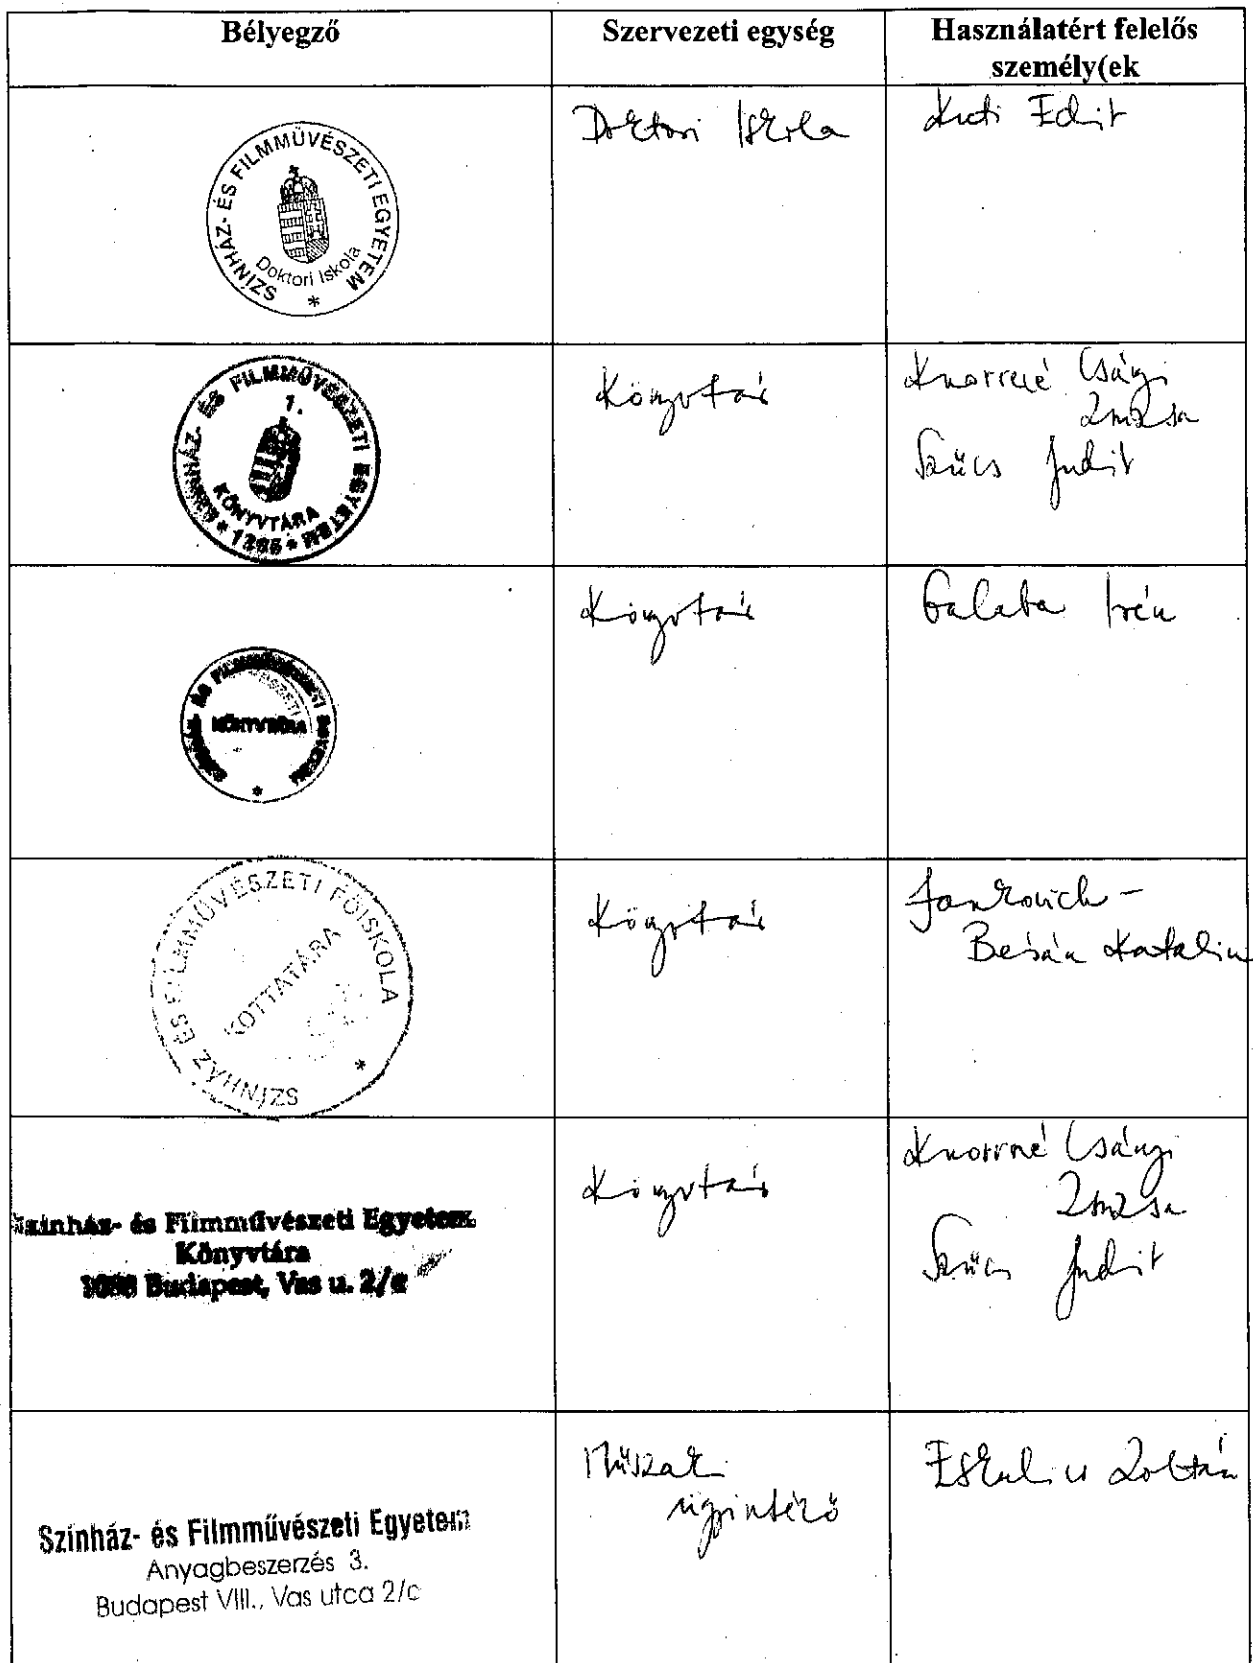 Bélyegző
Szervezeti egység
Használatért felelős
személy(ek
SZINHÁZ- ÉS FILMMŰVÉSZETI EGYETEM
Doktori Iskola
*
Doktori Iskola
Kuti Edit
SZINHÁZ- ÉS FILMMŰVÉSZETI EGYETEM
1.
KÖNYVTÁRA
* 1865 *
Könyvtár
Knorrné Csányi
Zsuzsa
Szűcs Judit
SZINHÁZ- ÉS FILMMŰVÉSZETI EGYETEM
KÖNYVTÁRA
*
Könyvtár
Galaba Irén
SZINHÁZ ÉS FILMMŰVÉSZETI FŐISKOLA
KOTTATÁRA
*
Könyvtár
Jankovich-
Katalin
Színház- és Filmművészeti Egyetem
Könyvtára
1088 Budapest, Vas u. 2/c
Könyvtár
Knorrné Csányi
Zsuzsa
Szűcs Judit
Színház- és Filmművészeti Egyetem
Anyagbeszerzés 3.
Budapest VIII., Vas utca 2/c
Műszaki
ügyintéző
Zoltán